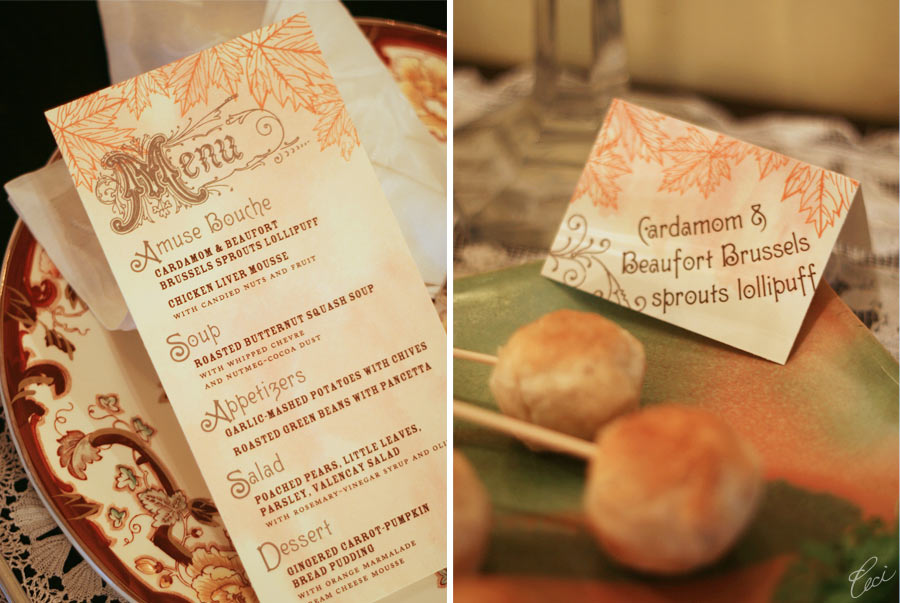 Menu
Amuse Bouche
CARDAMOM & BEAUFORT
BRUSSELS SPROUTS LOLLIPUFF
CHICKEN LIVER MOUSSE
WITH CANDIED NUTS AND FRUIT
Soup
ROASTED BUTTERNUT SQUASH SOUP
WITH WHIPPED CHEVRE
AND NUTMEG-COCOA DUST
Appetizers
GARLIC-MASHED POTATOES WITH CHIVES
ROASTED GREEN BEANS WITH PANCETTA
Salad
POACHED PEARS, LITTLE LEAVES,
PARSLEY, VALENCAY SALAD
WITH ROSEMARY-VINEGAR SYRUP AND
Dessert
GINGERED CARROT-PUMPKIN
BREAD PUDDING
WITH ORANGE MARMALADE
EAM CHEESE MOUSSE
Cardamom &
Beaufort Brussels
sprouts lollipuff
Ceci